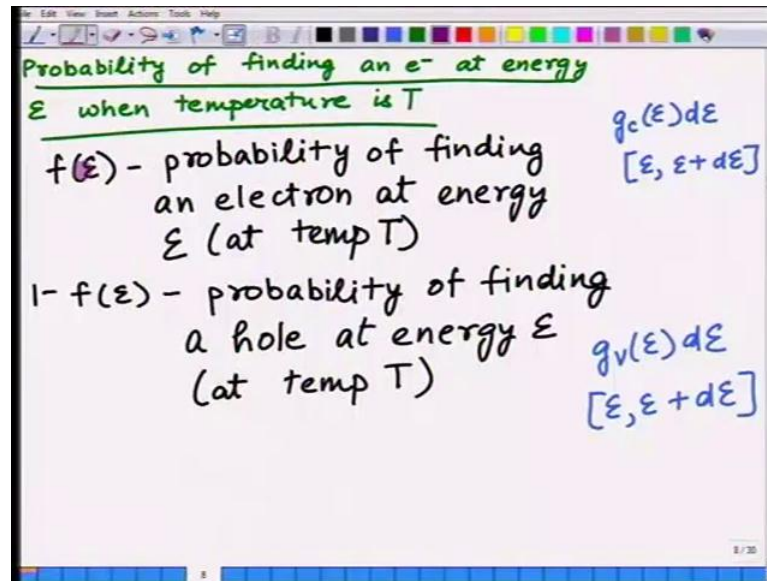 File Edit View Insert Actions Tools Help
Probability of finding an e⁻ at energy
ε when temperature is T
g_c(ε)dε
[ε, ε+dε]
f(ε) - probability of finding
an electron at energy
ε (at temp T)
1- f(ε) - probability of finding
a hole at energy ε
(at temp T)
g_v(ε)dε
[ε, ε+dε]
8/30
8